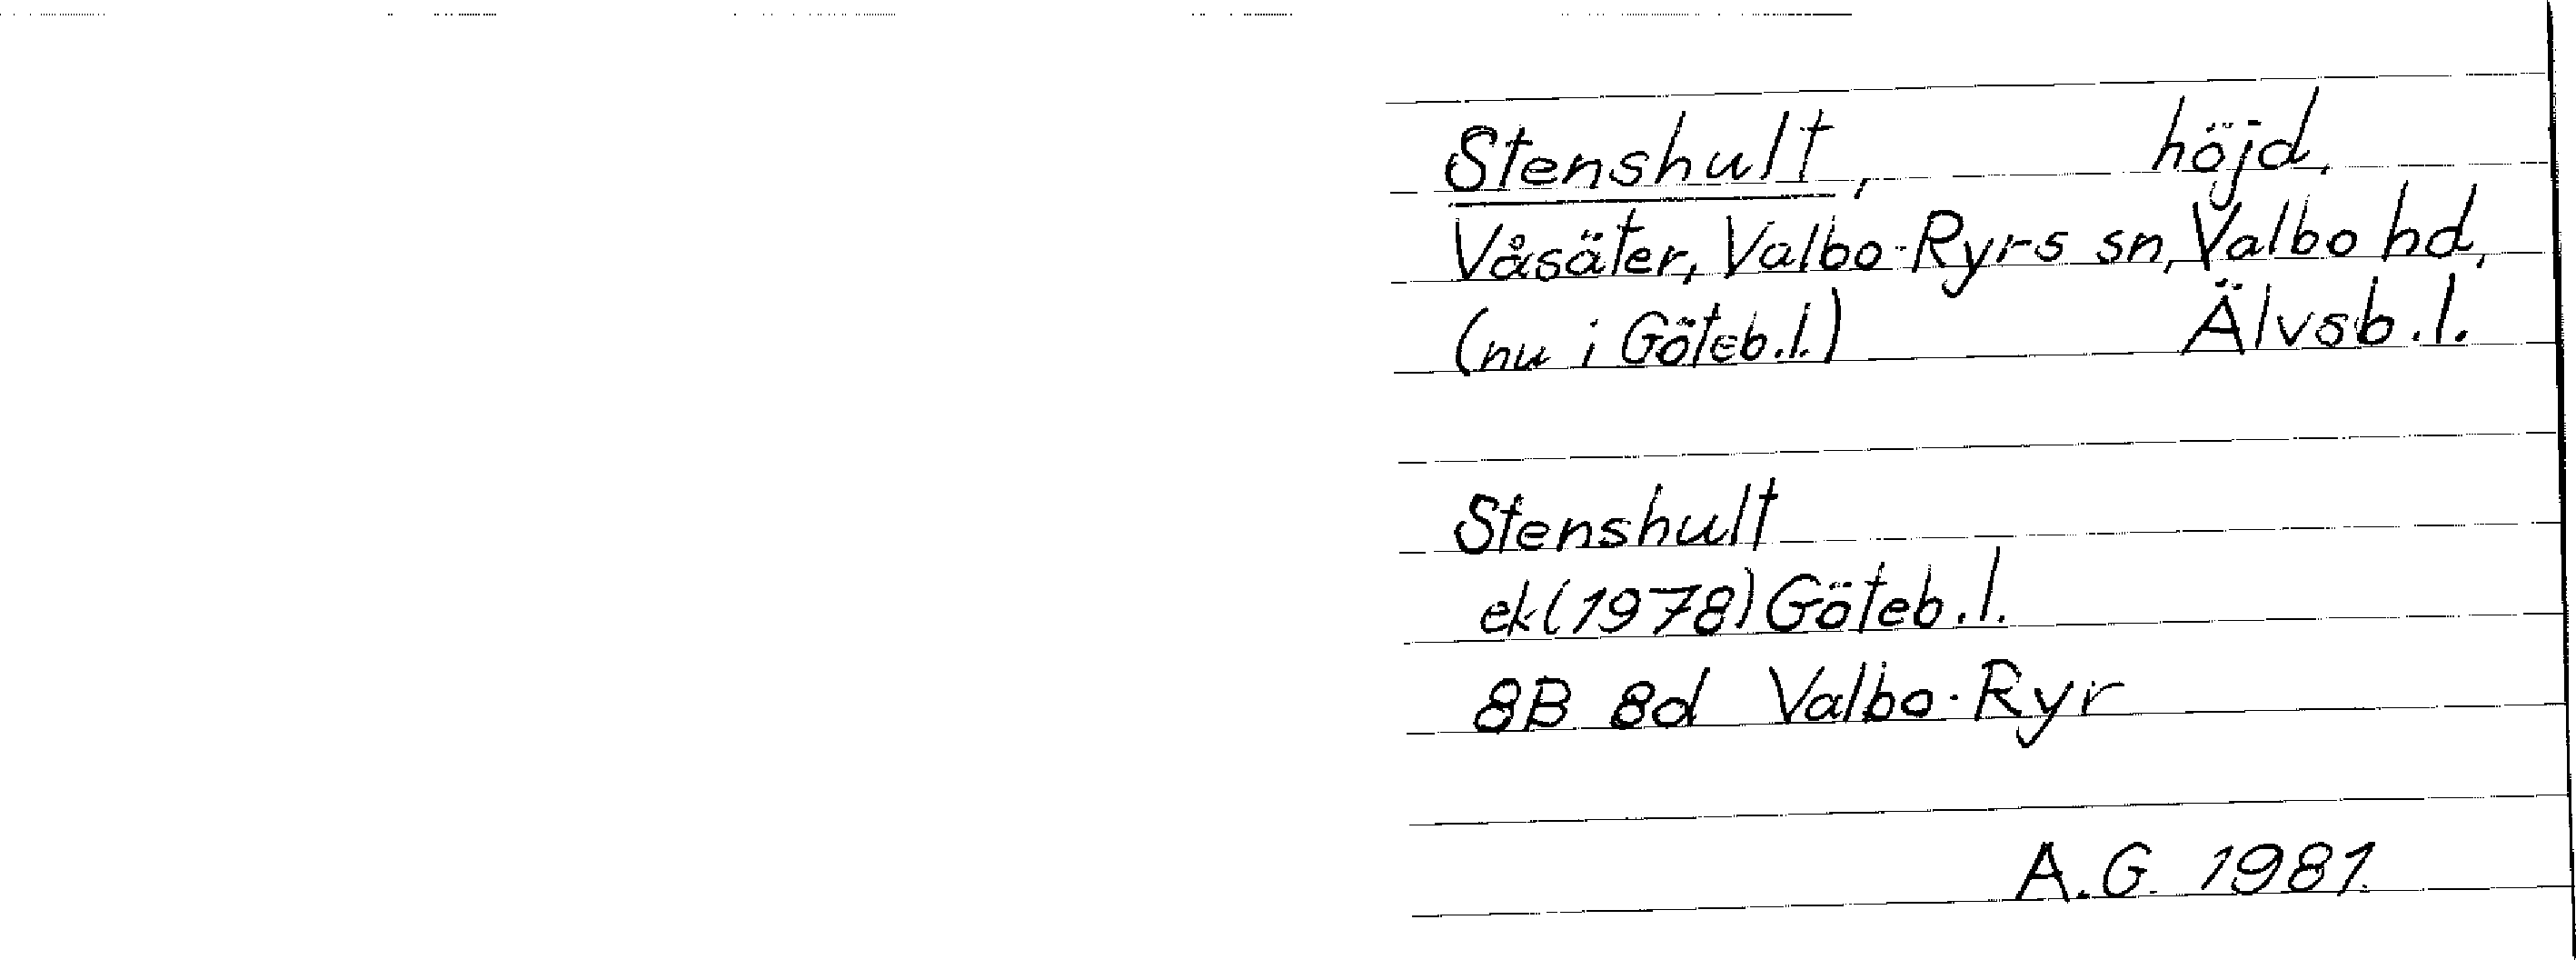 Stenshult, höjd,
Våsäter, Valbo-Ryrs sn, Valbo hd,
(nu i Göteb.l.) Älvsb.l.
Stenshult
ek (1978) Göteb.l.
8B 8d Valbo-Ryr
A.G. 1981.